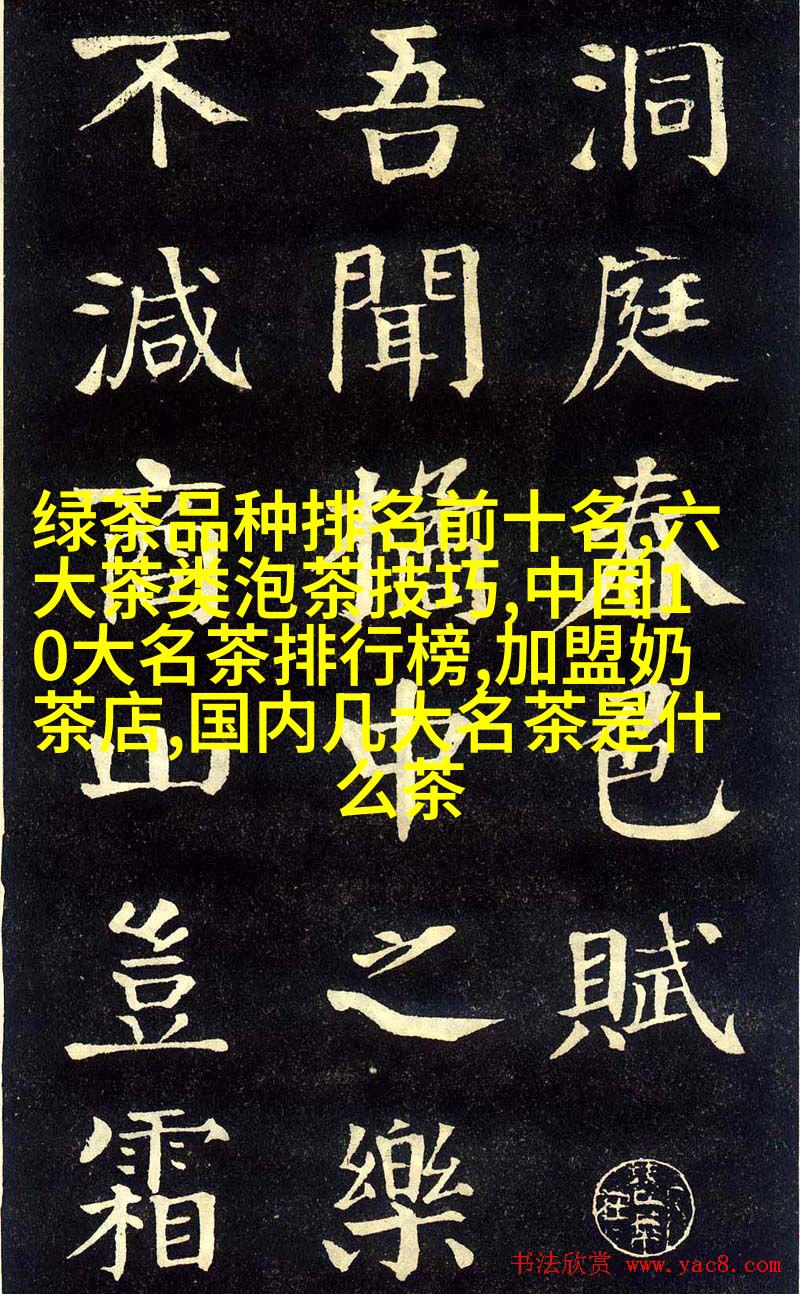 洞庭春色賦
吾聞橘中之樂
不減商山豈霜
绿茶品种排名前十名,六
大茶类泡茶技巧,中国1
0大名茶排行榜,加盟奶
茶店,国内几大名茶是什
么茶
书法欣赏 www.yac8.com